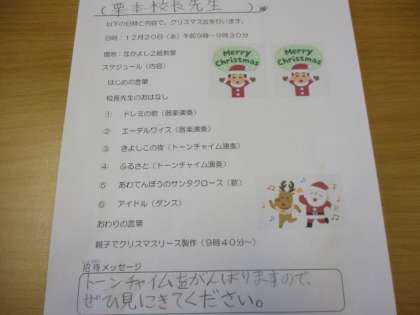 (栗本校長先生)様
以下の日時と内容で、クリスマス会を行います。
日時：12月20日（水）午前9時～9時30分
場所：なかよし2組教室
スケジュール（内容）
Merry Christmas
Merry Christmas
はじめの言葉
校長先生のおはなし
① ドレミの歌（器楽演奏）
② エーデルワイス（器楽演奏）
③ きよしこの夜（トーンチャイム演奏）
④ ふるさと（トーンチャイム演奏）
⑤ あわてんぼうのサンタクロース（歌）
⑥ アイドル（ダンス）
おわりの言葉
親子でクリスマスリース製作（9時40分～）
招待メッセージ
トーンチャイムをがんばりますので、
ぜひ見にきてください。